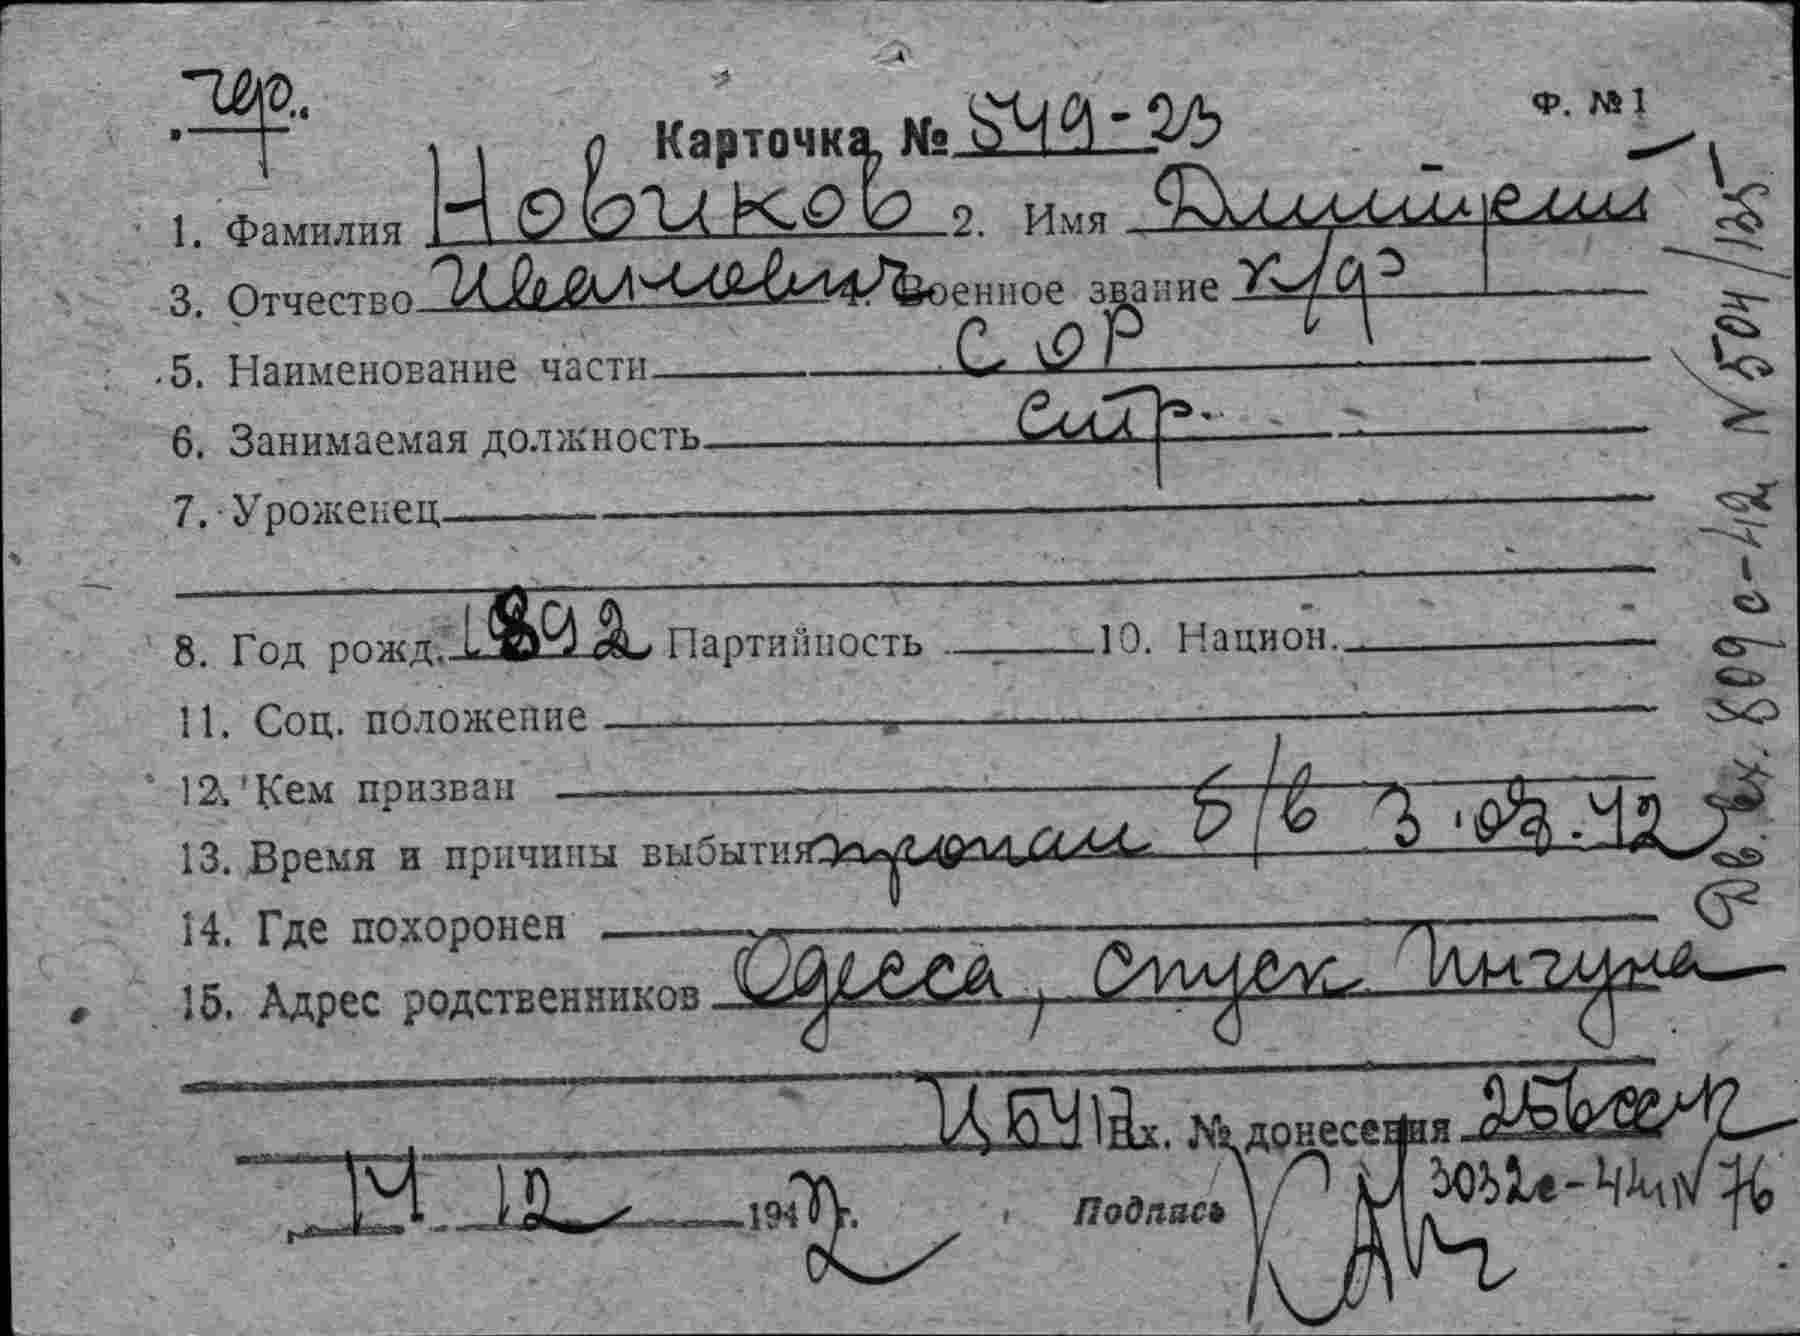 чер.
Ф. №1
Карточка № 549-23
1. Фамилия Новиков 2. Имя Дмитрий
3. Отчество Иванович 4. Военное звание к/ф
5. Наименование части СОР
6. Занимаемая должность стр.
7. Уроженец
8. Год рожд. 1892 Партийность 10. Национ.
11. Соц. положение
12. Кем призван
13. Время и причины выбытия пропал б/в 3.07.42
14. Где похоронен
15. Адрес родственников Одесса, спуск Инчуна
ЦБУП Вх. № донесения
14 12 1942 г. Подпись
3032с-44 N 76
вх. 809с-42 N 504/1251